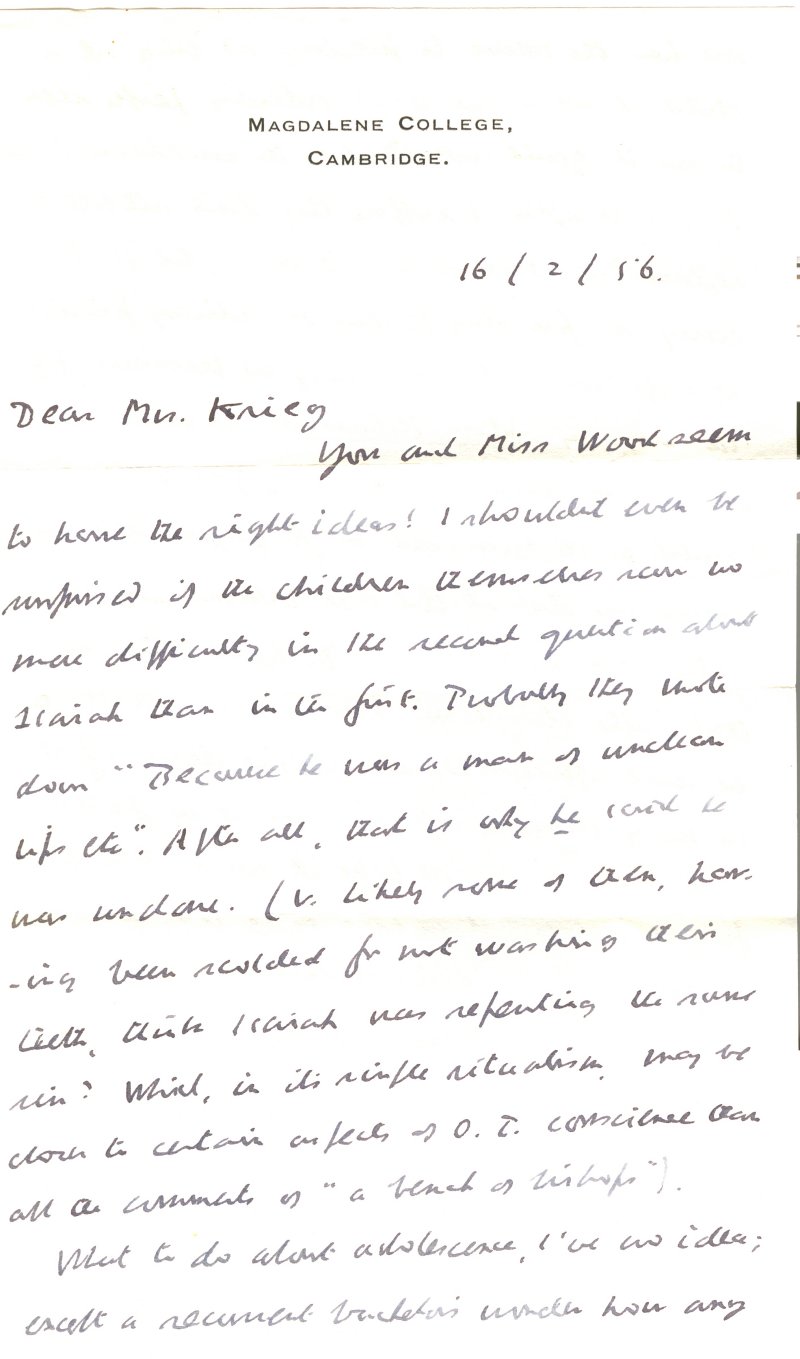 MAGDALENE COLLEGE,
CAMBRIDGE.
16/2/56.
Dear Mrs. Krieg
You and Miss Wood seem
to have the right ideas! I shouldnt even be
surprised if the children themselves saw no
more difficulty in the second question about
Isaiah than in the first. Probably they wrote
down "Because he was a man of unclean
lips etc". After all, that is why he said he
was undone. (V. likely some of them, hav-
-ing been scolded for not washing their
teeth, think Isaiah was repenting the same
sin? Which, in its simple ritualism, may be
closer to certain aspects of O. T. conscience than
all the comments of "a bench of bishops").
What to do about adolescence, I've no idea;
except a recurrent bachelor's wonder how any